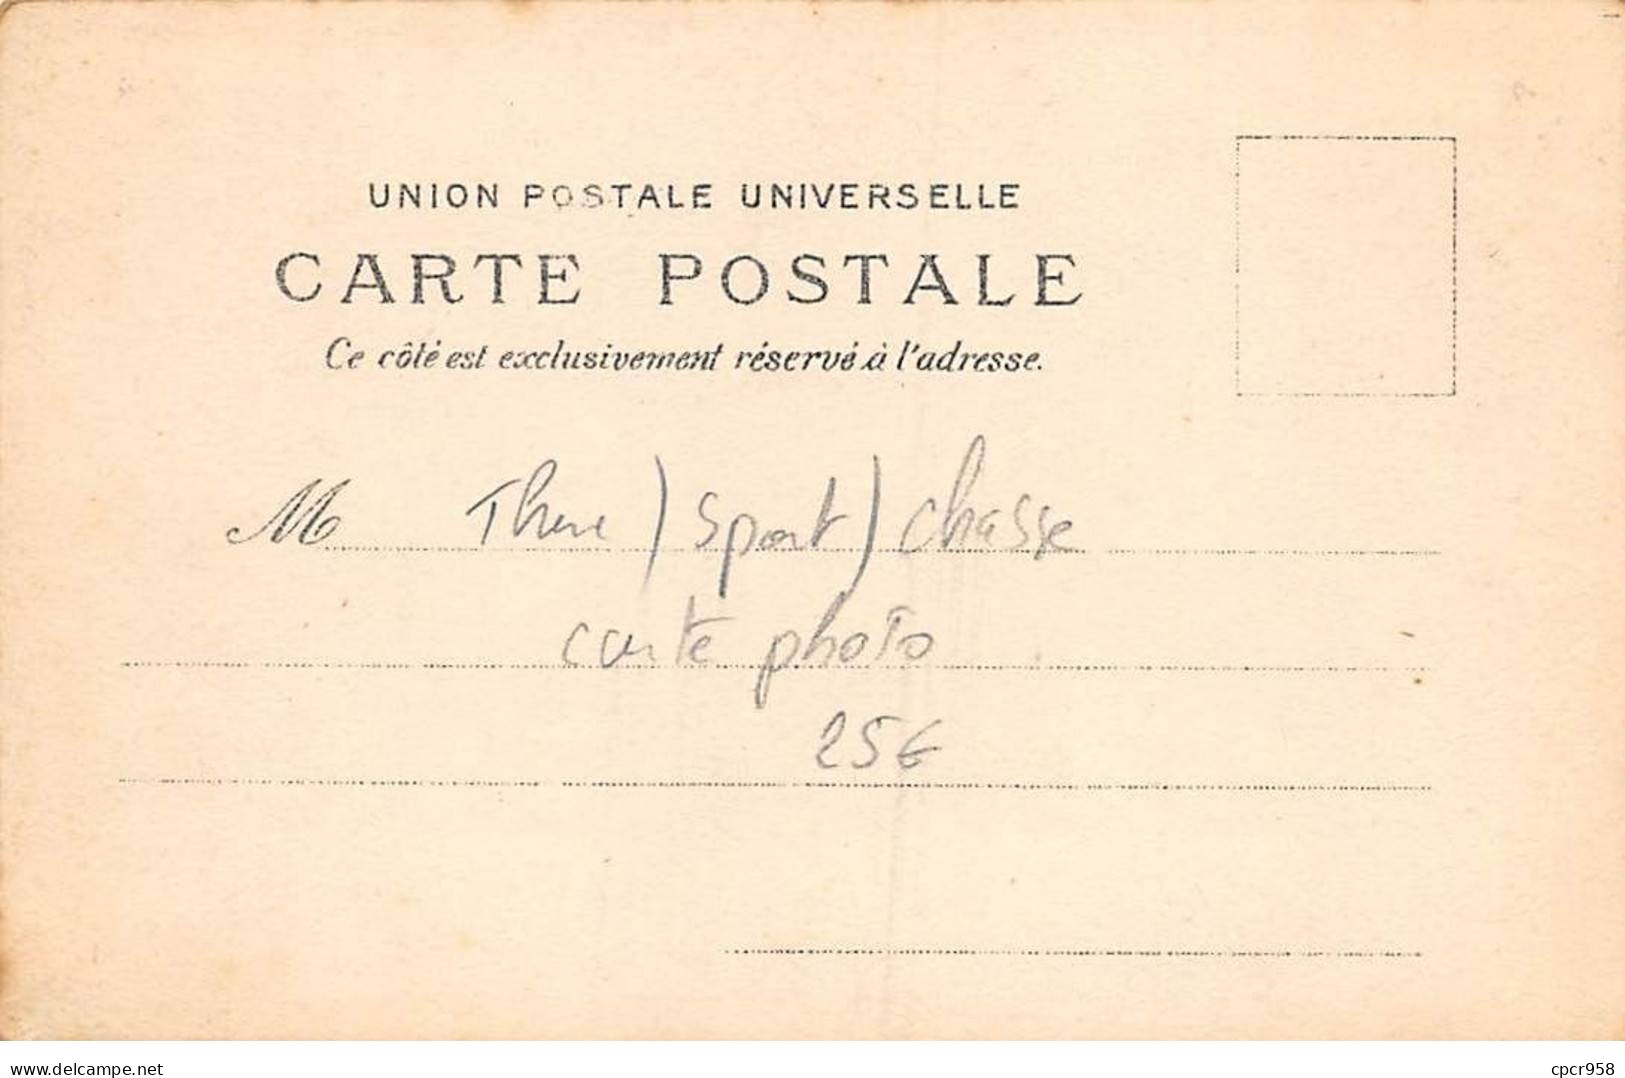 UNION POSTALE UNIVERSELLE
CARTE POSTALE
Ce côté est exclusivement réservé à l'adresse.
M Theme ) Sport ) chasse
carte photo
25€
www.delcampe.net cpcr958